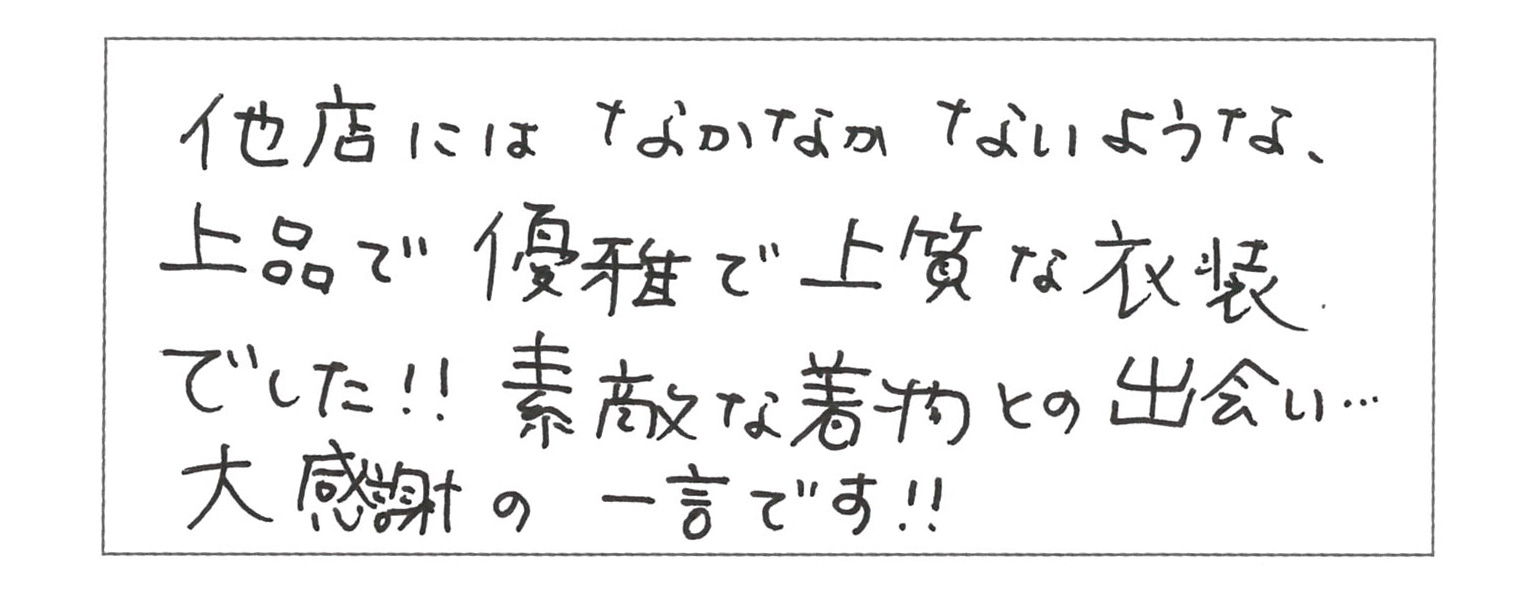 他店には なかなか ないような、
上品で 優雅で上質な衣装
でした!! 素敵な着物との出会い…
大感謝の 一言です!!